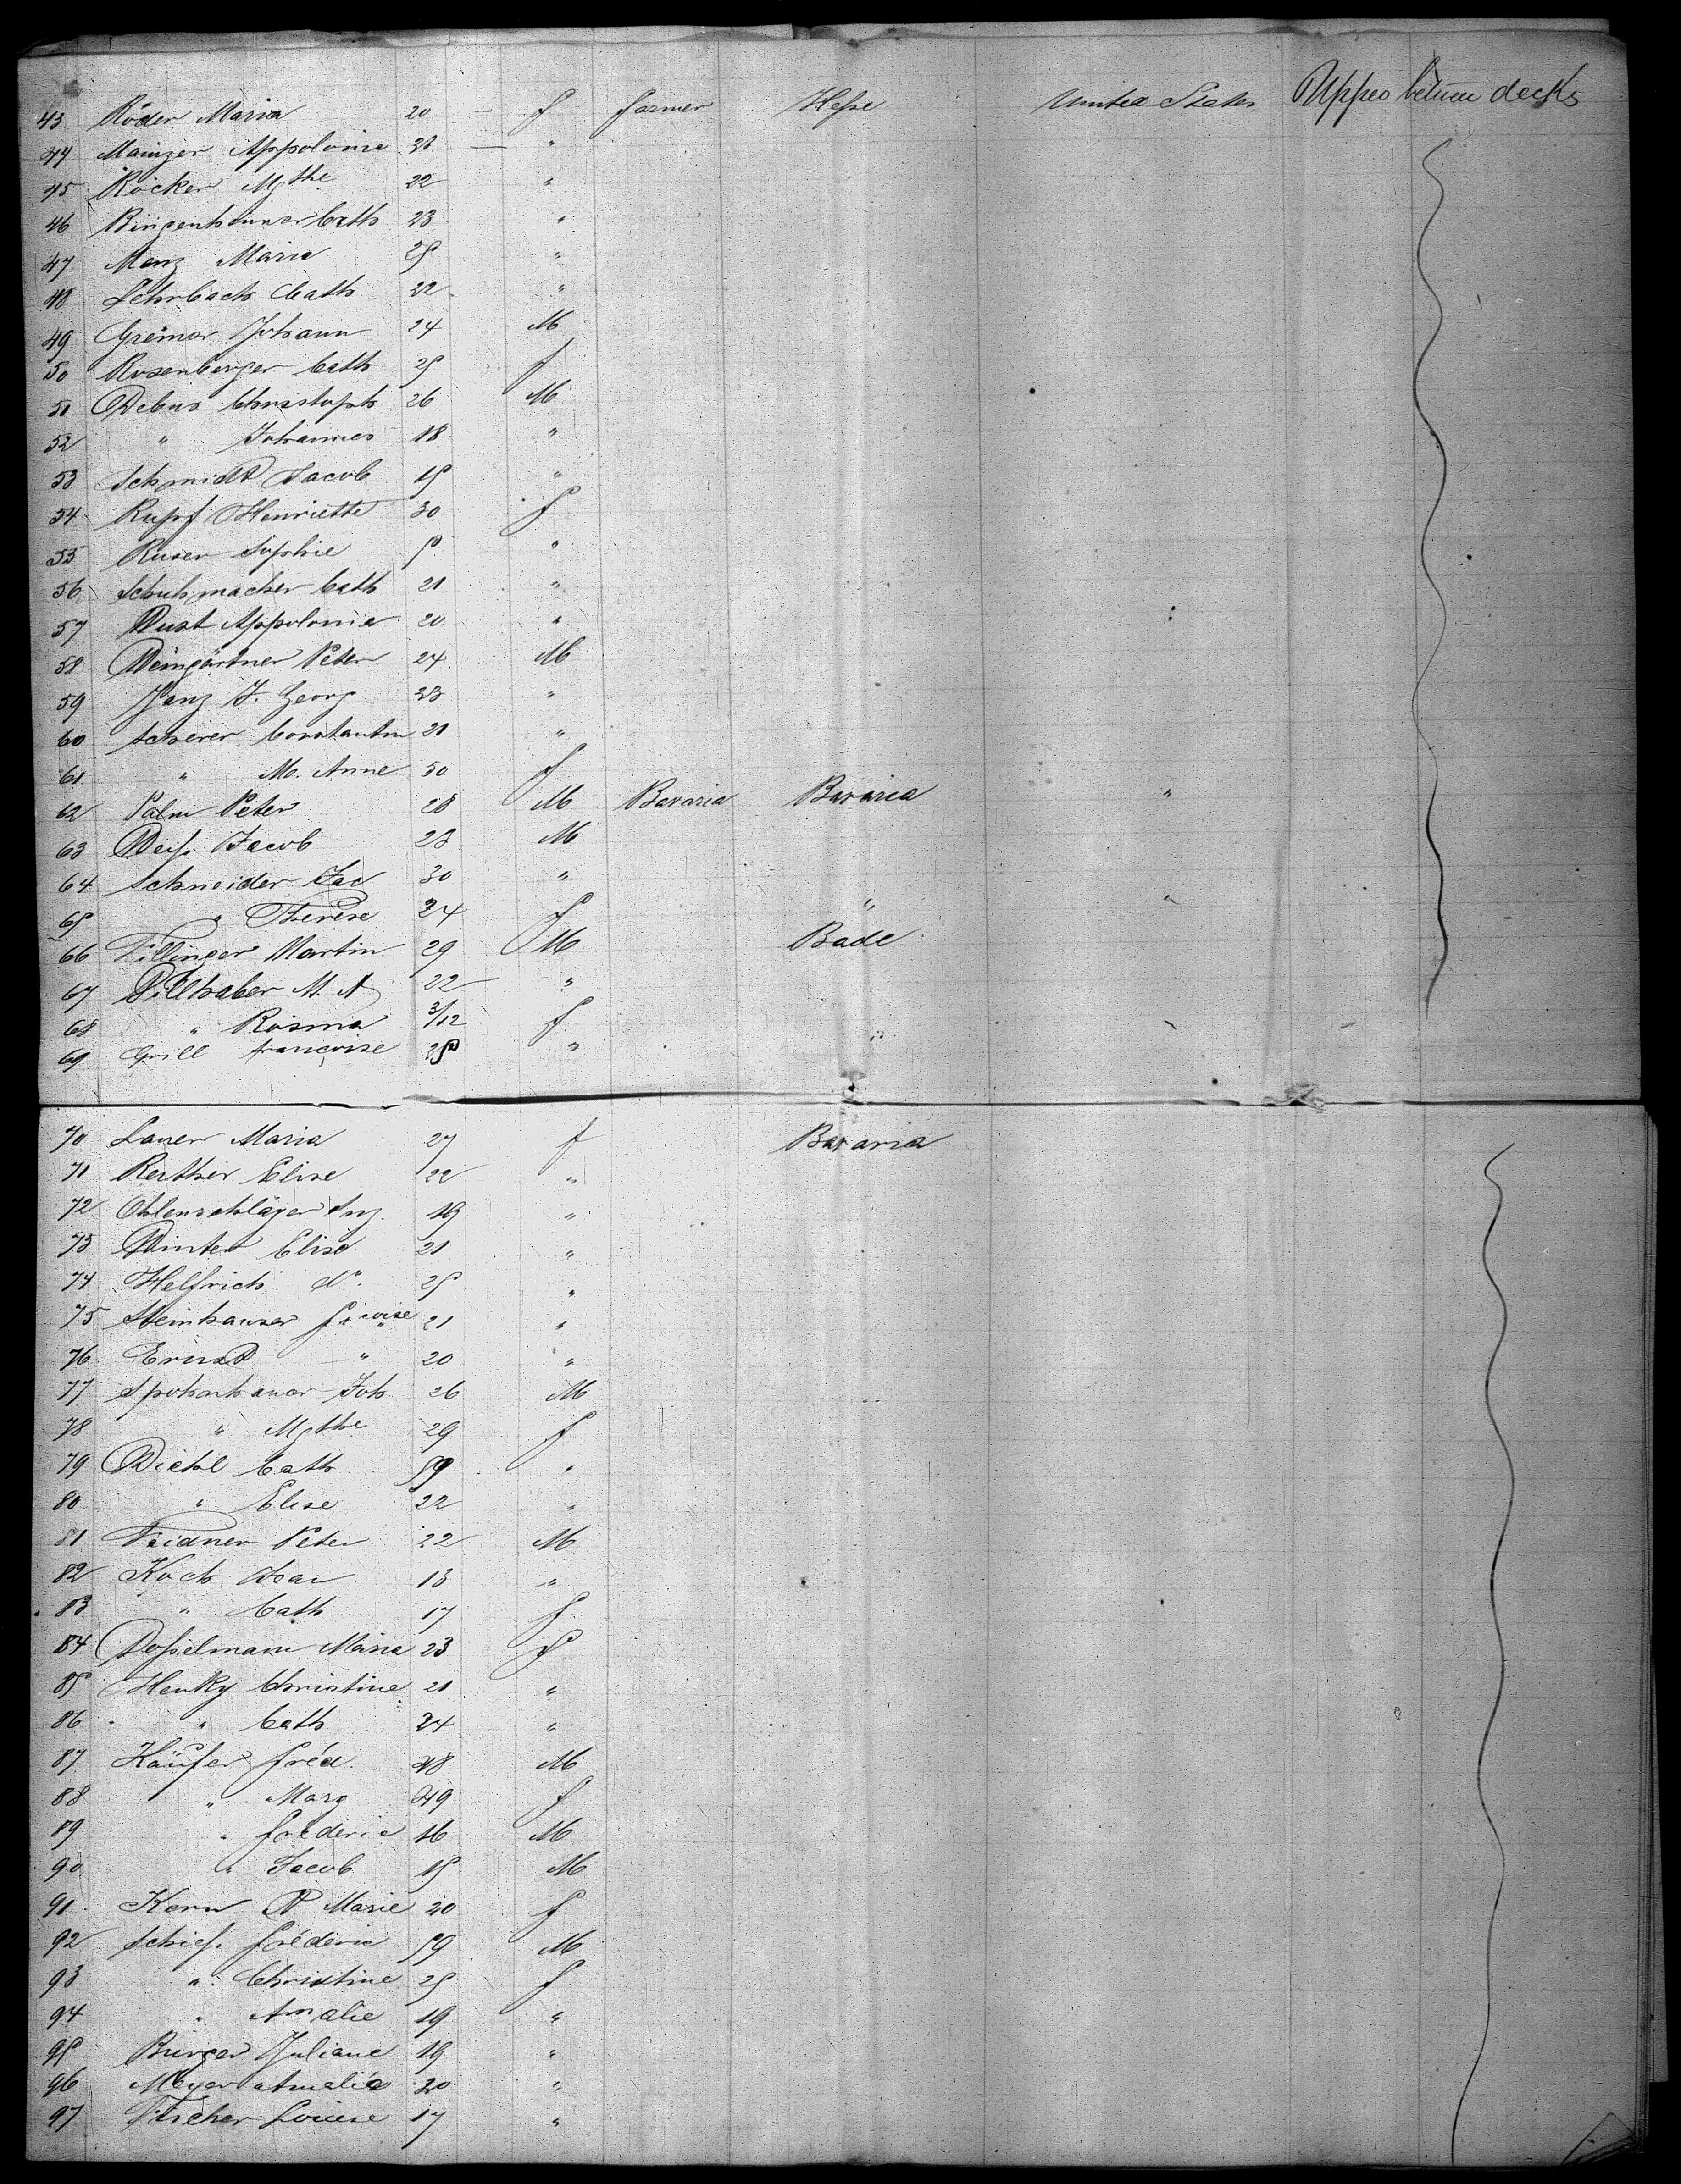 43 Röder Maria 20 — f farmer Hesse United States Upper betwen decks
44 Mainzer Appolonia 23 — "
45 Röcker Mgthe 22 "
46 Ringenhenner Cath 23 "
47 Manz Maria 25 "
48 Lehrbach Cath 22 "
49 Greiner Johann 24 M
50 Rosenberger Cath 25 f
51 Debus Christoph 26 M
52 " Johannes 18 "
53 Schmidt Jacob 15 "
54 Rupf Henriette 30 f
55 Ruser Sophie 5 "
56 Schuhmacher Cath 21 "
57 Wust Appolonia 20 "
58 Weingärtner Peter 24 M
59 Janz J. Georg 23 "
60 Scherer Constantin 21 "
61 " M. Anne 50 f
62 Palm Peter 28 M Bavaria Bavaria "
63 Jacob 23 M
64 Schneider Jac 30 "
65 " Therese 24 f " "
66 Fillinger Martin 29 M Bade
67 Dillhaber M. A 22 "
68 " Rosina 3/12 f
69 Grill francoise 25 " "
70 Lauer Maria 27 f Bavaria
71 Reither Elise 22 "
72 Ohlenschläger 19 "
73 Winter Elise 21 "
74 Helfrich do. 25 "
75 Steinhauser frcoise 21 "
76 " 20 "
77 Spohnhauer Joh 26 M
78 " Mgthe 29 f
79 Diehl Cath 59 "
80 " Elise 22 "
81 Feidner Peter 22 M
82 Koch 13 "
83 " Cath 17 f
84 Dosselmann Maria 23 f
85 Henky Christine 21 "
86 " Cath 24 "
87 Käufer fréd. 48 M
88 " Marg 49 f
89 " fréderic 16 M
90 " Jacob 15 M
91 Kern Marie 20 f
92 Schies fréderic 59 M
93 " Christine 25 f
94 " Amalie 19 "
95 Burger Juliane 19 "
96 Meyer Amelie 20 "
97 Fischer Louise 17 "